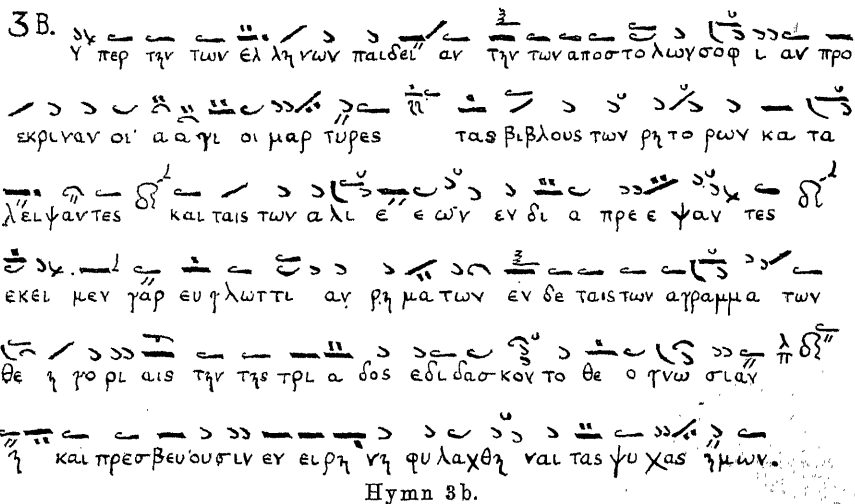 3B.
Υ περ την των ελ λη νων παιδει αν την των αποστο λων σοφ ι αν προ
εκριναν οι α α γι οι μαρ τυρες τας βιβλους των ρη το ρων κα τα
λειψαντες και ταις των αλι ε ε ων εν δι α πρε ε ψαν τες
εκει μεν γαρ ευ γλωττι αν ρη μα των εν δε ταις των αγραμμα των
θε η γο ρι αις την της τρι α δος εδιδασκον το θε ο γνω σιαν
η και πρεσβευουσιν εν ειρη νη φυλαχθη ναι τας ψυχας ημων.
Hymn 3b.